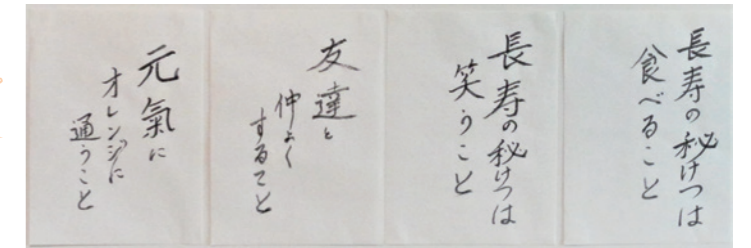 長寿の秘けつは
食べること
長寿の秘けつは
笑うこと
友達と
仲よく
すること
元氣に
オレンジに
通うこと